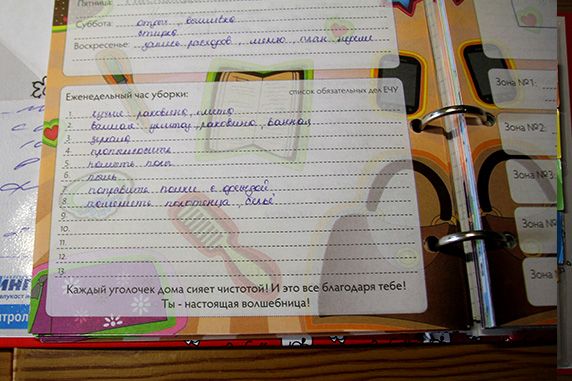 Пятница:
Суббота: отдых, вышивка
стирка
Воскресенье: запись расходов, меню, план, крем
Еженедельный час уборки:
список обязательных дел ЕЧУ
1. кухня: раковина, плита
2. ванная: унитаз, раковина, ванная
3. зеркала
4. пропылесосить
5. помыть пол
6. пыль
7. поправить полки с одеждой
8. поменять полотенца, бельё
9.
10.
11.
12.
13.
Каждый уголочек дома сияет чистотой! И это все благодаря тебе!
Ты - настоящая волшебница!
Зона №1:
Зона №2:
Зона №3
Зона